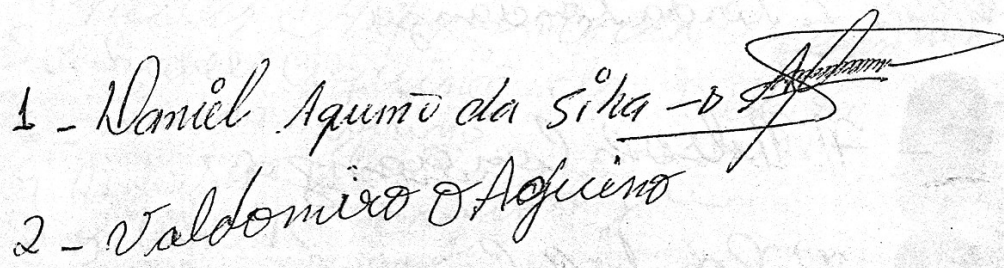 1 - Daniel Aquino da Silva -
2 - Valdomiro O Aquino